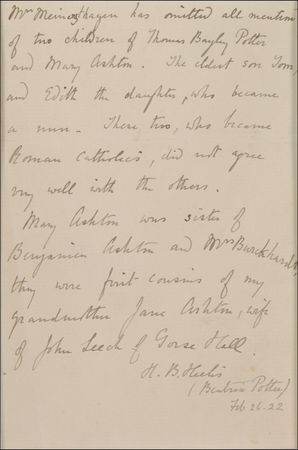 Mrs Meinertzhagen has omitted all mention
of two children of Thomas Bayley Potter
and Mary Ashton. The eldest son Tom
and Edith the daughter, who became
a nun. These two, who became
Roman Catholics, did not agree
very well with the others.
Mary Ashton was sister of
Benjamin Ashton and Mrs Burckhardt,
they were first cousins of my
grandmother Jane Ashton, wife
of John Leech of Gorse Hall.
H. B. Heelis
(Beatrix Potter)
Feb 26. 22